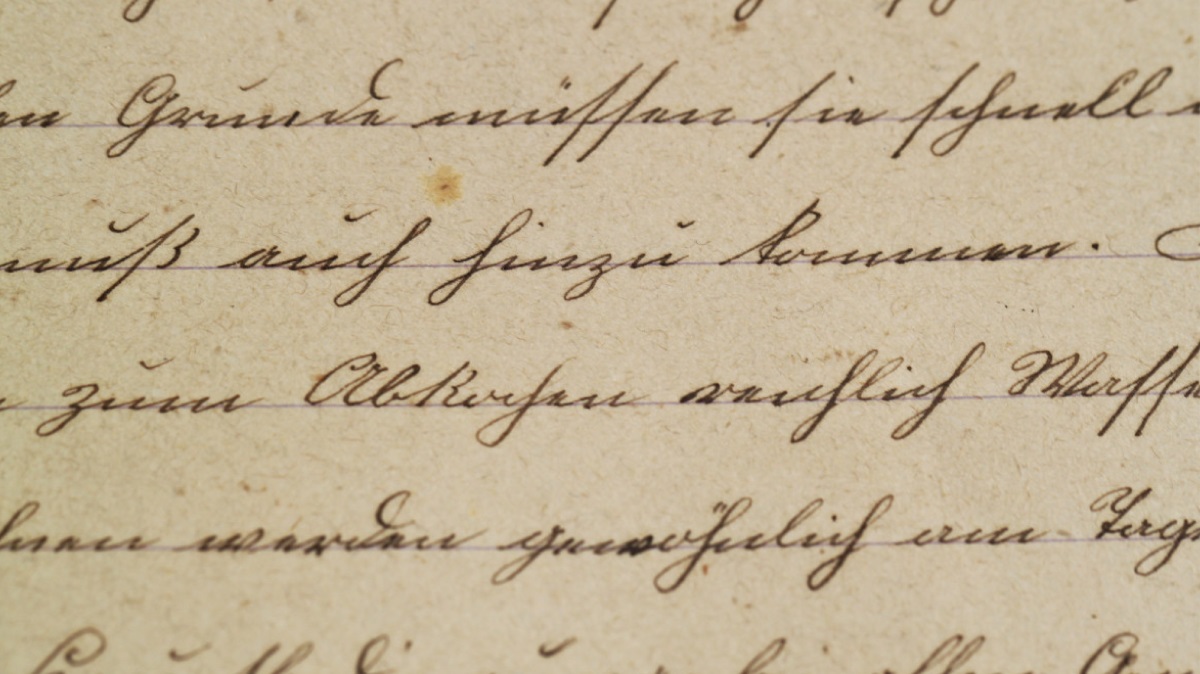 Grunde müssen sie schnell
muß auch hinzu kommen.
zum Abkochen reichlich Wasse
werden gewöhnlich am Tag